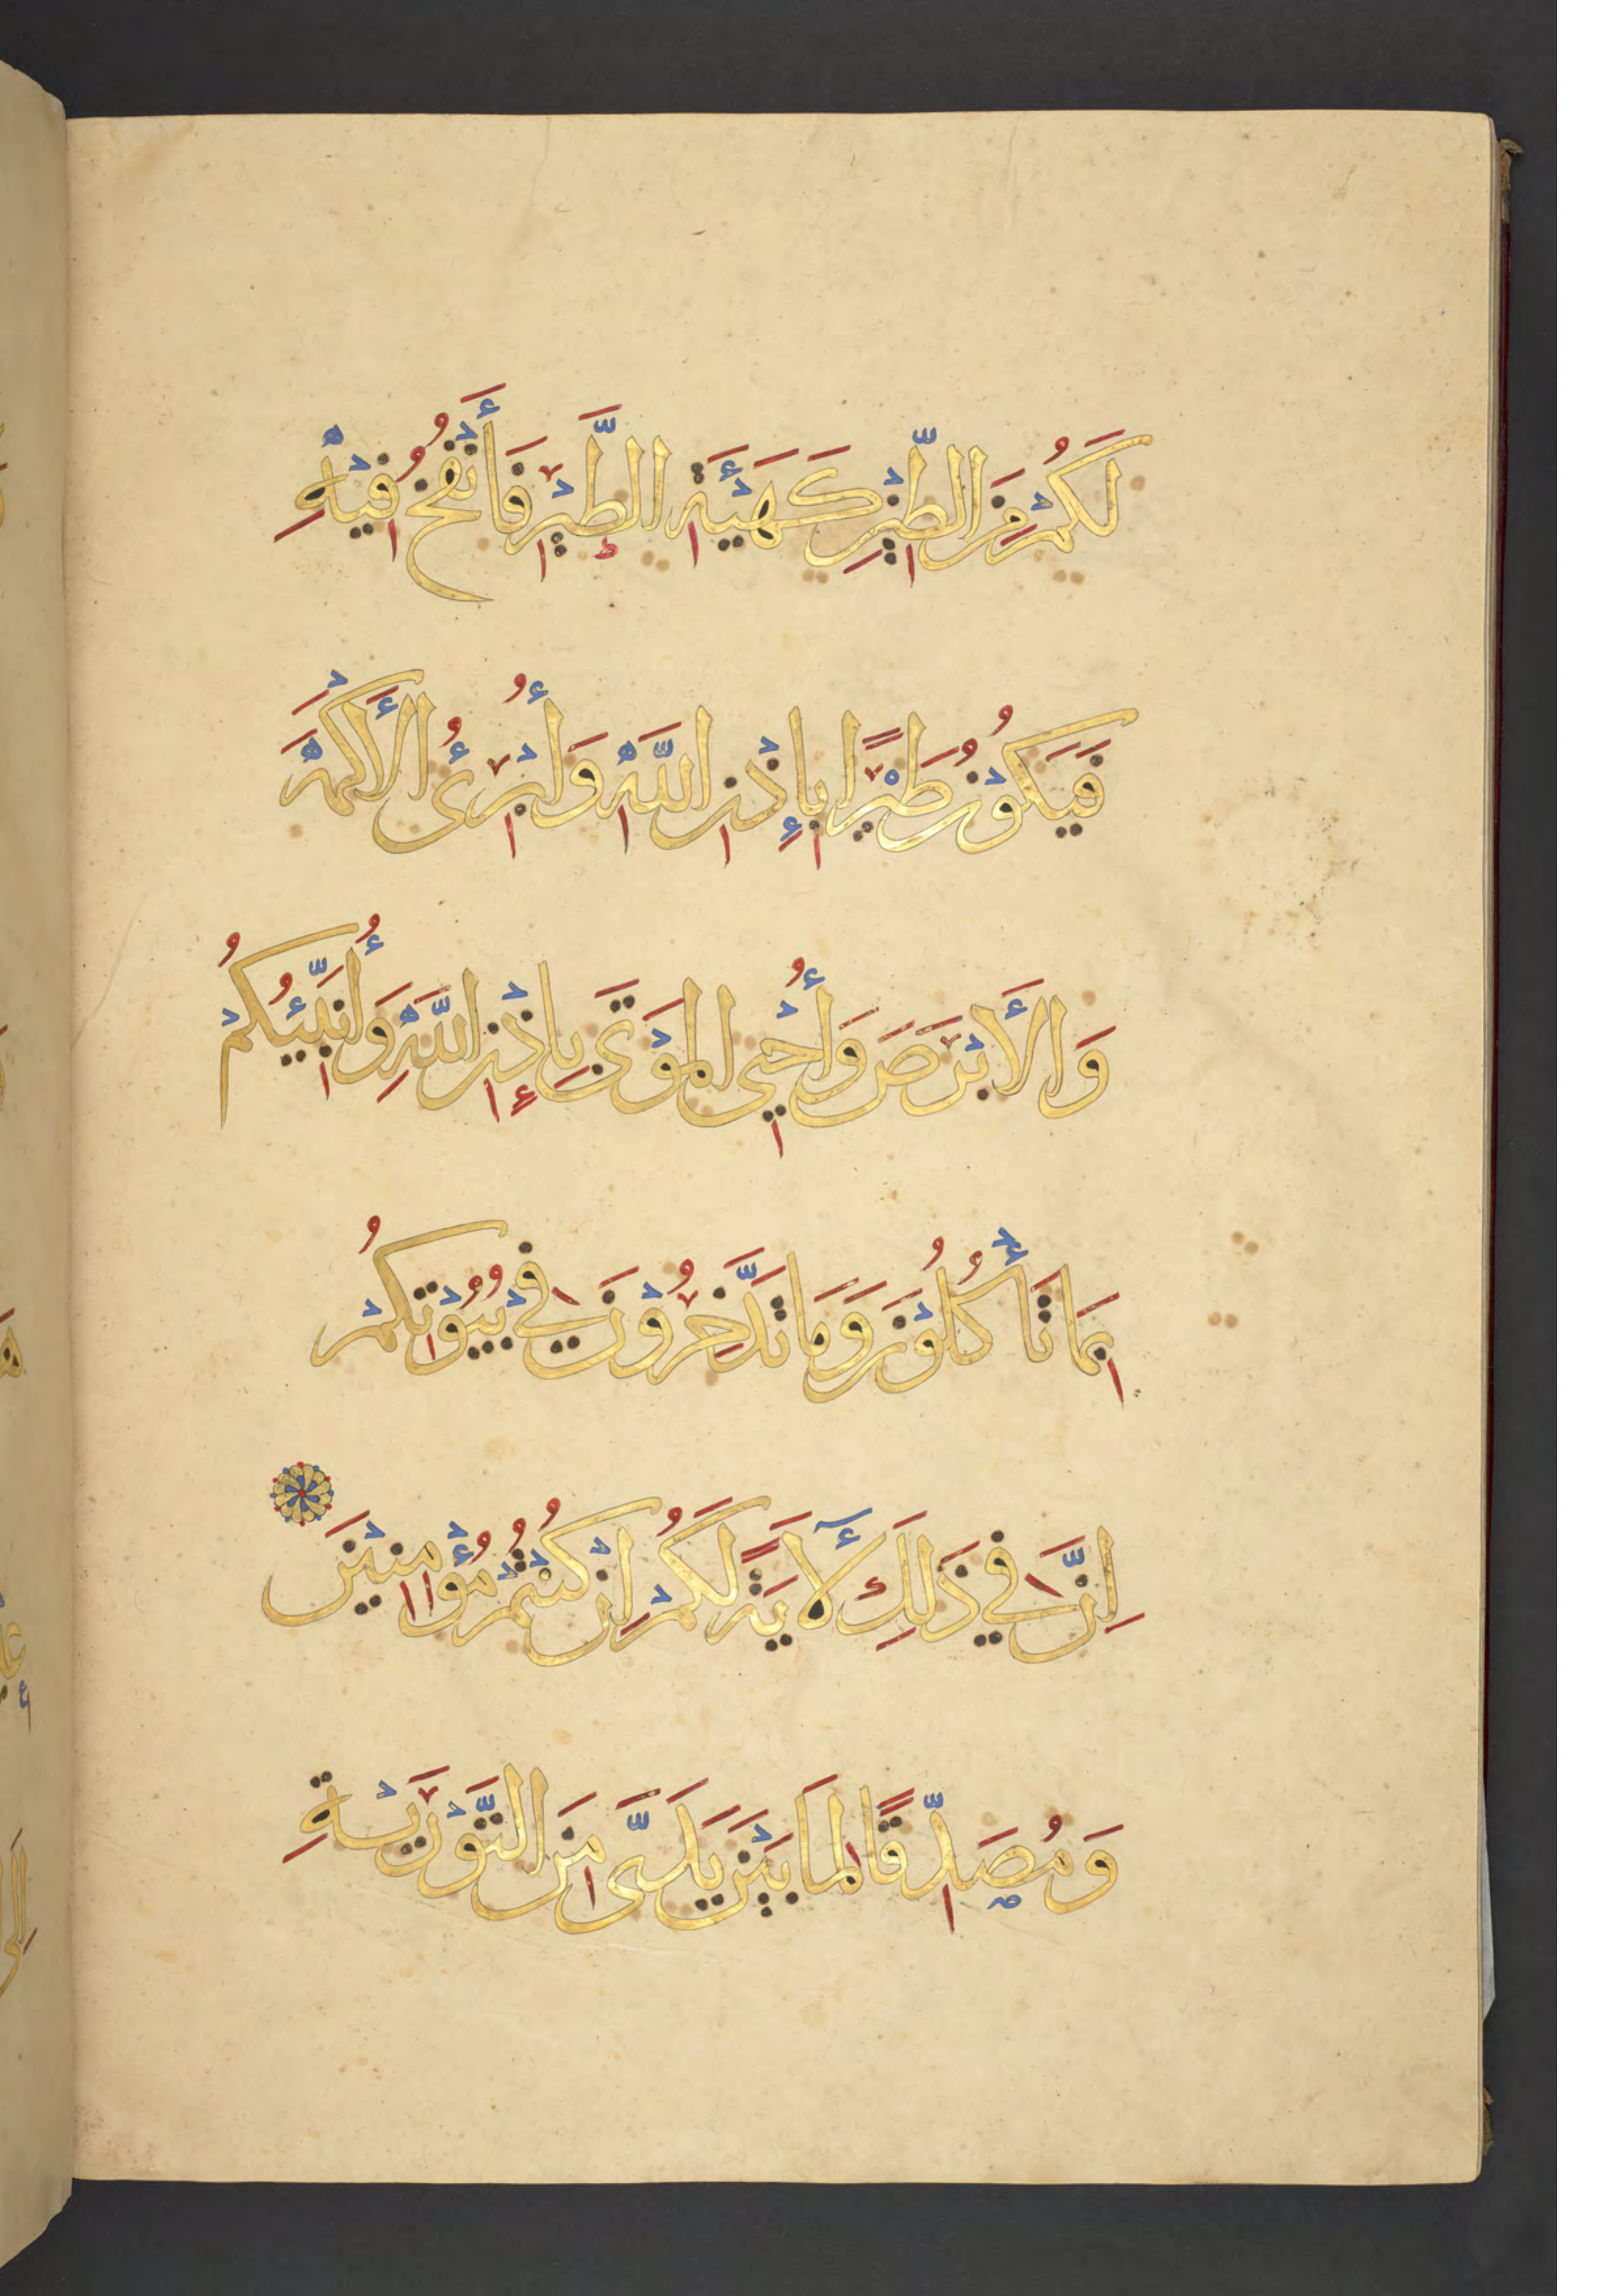 لَكُمْ مِنَ الطِّيْنِ كَهَيْئَةِ الطَّيْرِ فَأَنْفُخُ فِيْهِ
فَيَكُوْنُ طَيْرًا بِإِذْنِ اللَّهِ وَأُبْرِئُ الْأَكْمَهَ
وَالْأَبْرَصَ وَأُحْيِ الْمَوْتَى بِإِذْنِ اللَّهِ وَأُنَبِّئُكُمْ
بِمَا تَأْكُلُوْنَ وَمَا تَدَّخِرُوْنَ فِيْ بُيُوْتِكُمْ
اِنَّ فِيْ ذَلِكَ لَآيَةً لَكُمْ اِنْ كُنْتُمْ مُؤْمِنِيْنَ
وَمُصَدِّقًا لِمَا بَيْنَ يَدَيَّ مِنَ التَّوْرَيْةِ